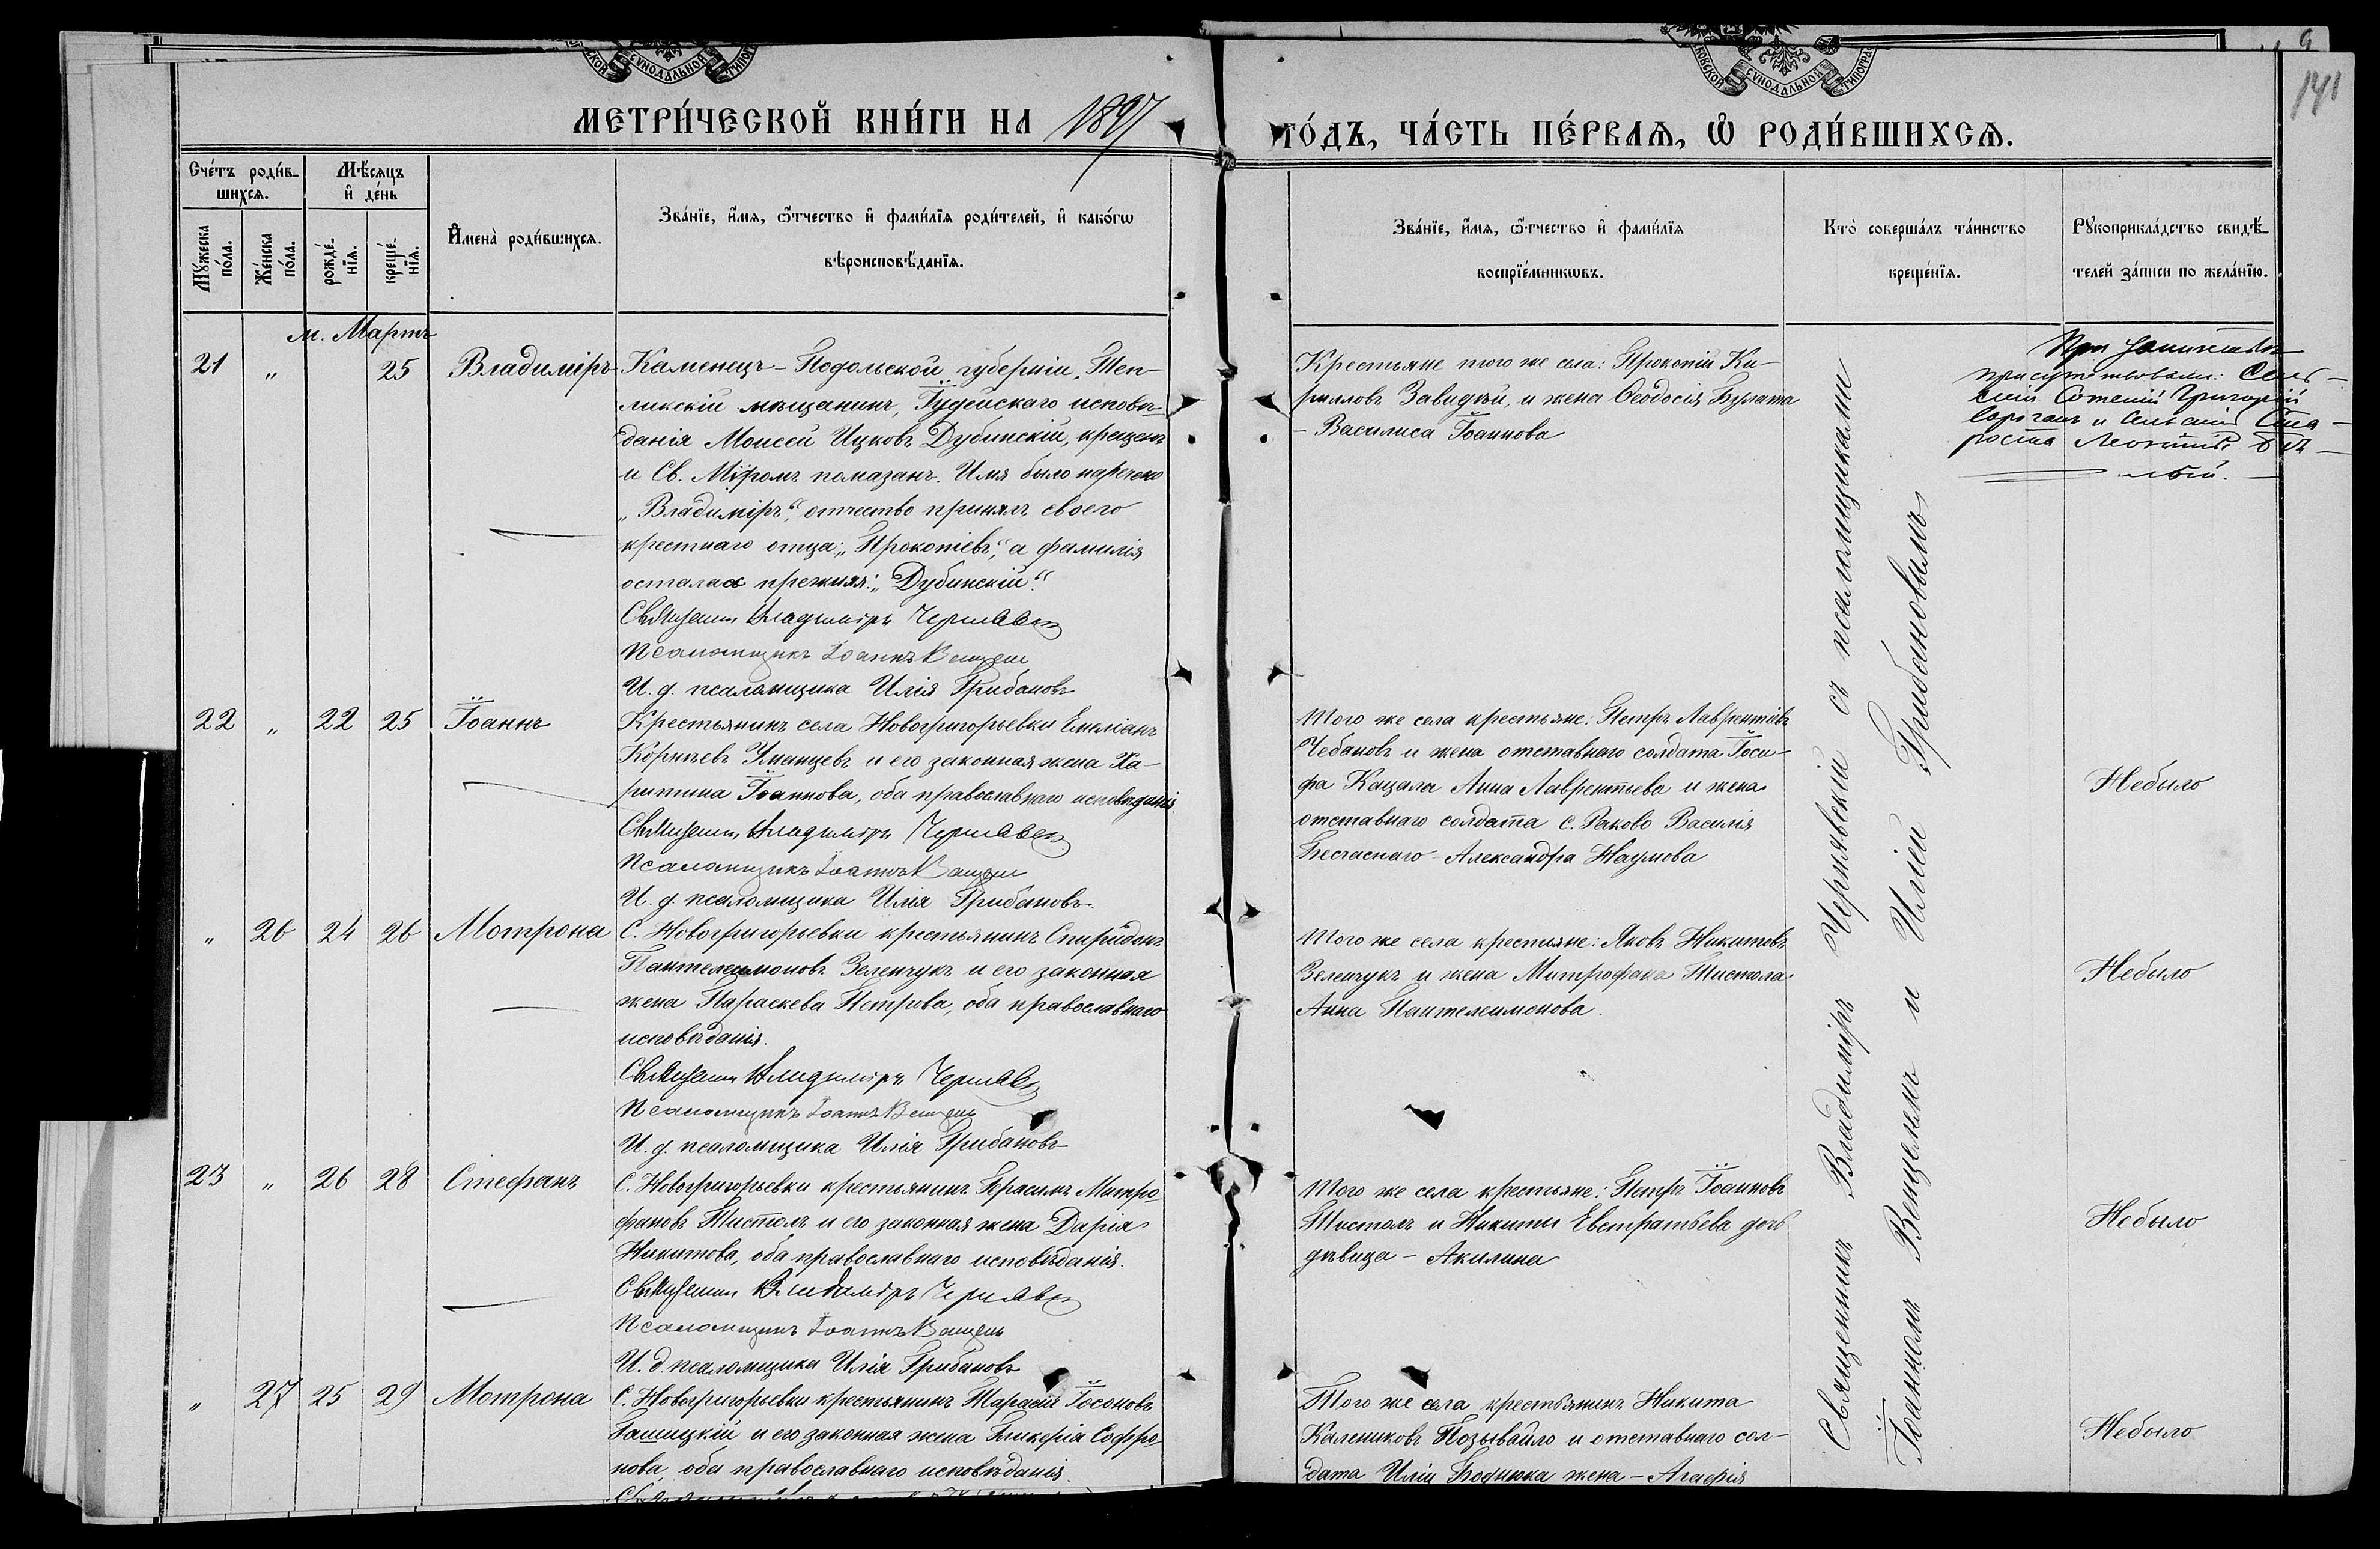 СѴНОДАЛЬНОЙ
СѴНОДАЛЬНОЙ
141
МЕТРИ́ЧЕСКОЙ КНИ́ГИ НА 1897
ГО́ДЪ, ЧА́СТЬ ПЕ́РВАѦ, Ѡ҆ РОДИ́ВШИХСѦ.
Сче́тъ роди́в-
шихсѧ.
Мѣ́сѧцъ
и҆ де́нь
Мꙋ́жеска
по́ла.
Же́нска
по́ла.
рожде́-
нїѧ.
креще́-
нїѧ.
И҆мена̀ роди́вшихсѧ.
Зва́нїе, и҆́мѧ, ѻ҆́тчество и҆ фами́лїѧ роди́телей, и҆ како́гѡ
вѣроисповѣ́данїѧ.
Зва́нїе, и҆́мѧ, ѻ҆́тчество и҆ фами́лїѧ
воспрїе́мникѡвъ.
Кто̀ соверша́лъ та́инство
креще́нїѧ.
Рꙋкоприкла́дство свидѣ́-
телей за́писи по жела́нїю.
м. Мартъ
21 " 25 Владиміръ
Каменецъ-Подольской губерніи, Теп-
ликскій мѣщанинъ, Іудейскаго исповѣ-
данія Моисей Ицковъ Дубинскій, крещенъ
и Св. Мѵромъ помазанъ. Имя было наречено
„Владиміръ“, отчество принялъ своего
крестнаго отца: „Прокопіевъ“, а фамилія
осталась прежняя: „Дубинскій“.
Священник Владиміръ Чернявскій
Псаломщикъ Іоаннъ Венцель
И. д. псаломщика Илія Грибановъ
Крестьяне того же села: Прокопій Ки-
рилловъ Завидкій, и жена Ѳеодосія Булата
- Василиса Іоаннова
При
присутствовали: Сель-
скій Сотскій Григорій
и Сельскій Ста-
роста Леонтій Бѣ-
лый.
22 " 22 25 Іоаннъ
Крестьянинъ села Новогригорьевки Емиліанъ
Корнѣевъ Уманцевъ и его законная жена Ха-
ритина Іоаннова, оба православнаго исповѣданія.
Священник Владиміръ Чернявскій
Псаломщикъ Іоаннъ Венцель
И. д. псаломщика Илія Грибановъ.
Того же села крестьяне: Петръ Лаврентіевъ
Чебановъ и жена отставнаго солдата Іоси-
фа Кацала Анна Лаврентьева и жена
отставнаго солдата с. Раково Василія
Бесчаснаго - Александра Наумова
Небыло
" 26 24 26 Мотрона
С. Новогригорьевки крестьянинъ Спиридонъ
Пантелеимоновъ Зеленчукъ и его законная
жена Параскева Петрова, оба православнаго
исповѣданія.
Священник Владиміръ Чернявскій
Псаломщикъ Іоаннъ Венцель
И. д. псаломщика Илія Грибановъ
Того же села крестьяне: Яковъ Никитовъ
Зеленчукъ и жена Митрофана Тистола
Анна Пантелеимонова.
Небыло
23 " 26 28 Стефанъ
С. Новогригорьевки крестьянинъ Герасимъ Митро-
фановъ Тистолъ и его законная жена Дарія
Никитова, оба православнаго исповѣданія.
Священник Владиміръ Чернявскій
Псаломщикъ Іоаннъ Венцель
И. д. псаломщика Илія Грибановъ
Того же села крестьяне: Петръ Іоанновъ
Тистолъ и Никиты Евстратьева дочь
дѣвица - Акилина
Небыло
" 27 25 29 Мотрона
С. Новогригорьевки крестьянинъ Тарасій Іосоновъ
и его законная жена Гликерія Софро-
нова, оба православнаго исповѣданія.
Того же села крестьянинъ Никита
Калениковъ Позывайло и отставнаго сол-
дата Иліи Боднюка жена - Агафія
Небыло
Священникъ Владиміръ Чернявскій съ псаломщиками
Іоанномъ Венцелемъ и Иліей Грибановымъ